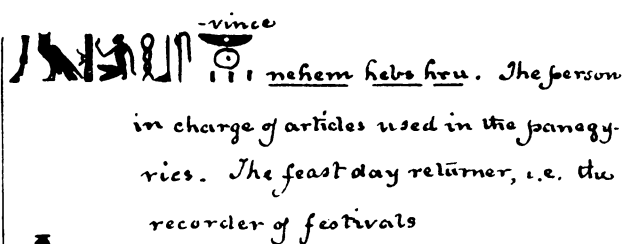 -vince
nehem hebs hru. The person
in charge of articles used in the panegy-
rics. The feast day returner, i.e. the
recorder of festivals